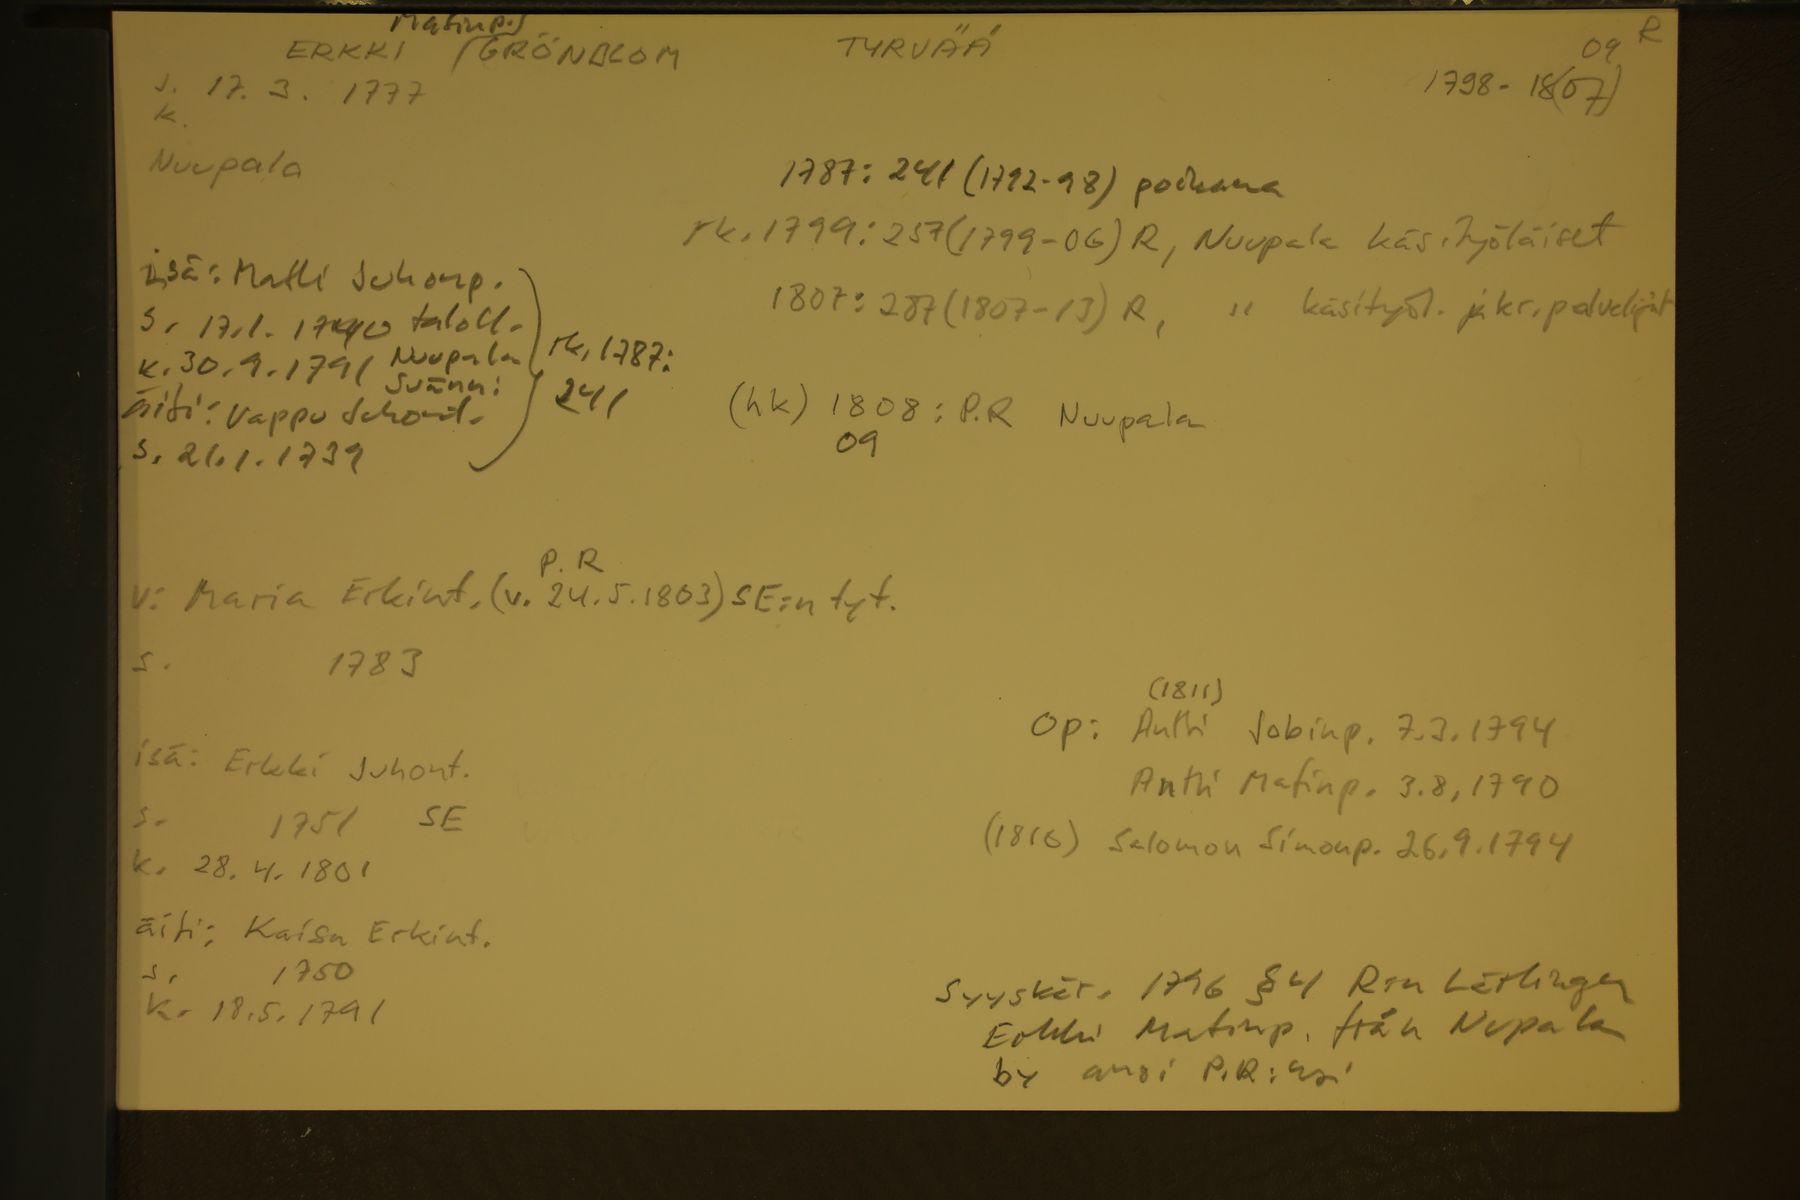 Matinp.
ERKKI (GRÖNBLOM TYRVÄÄ 09 R
s. 17. 3. 1777 1798 - 18(07)
k.
Nuupala 1787: 241 (1792-98) poikana
rk. 1799: 257 (1799-06) R, Nuupala käsityöläiset
isä: Matti Juhonp.
1807: 287 (1807-13) R, " käsityöl. ja kr. palvelijat
s. 17.1. 1740 taloll.
k. 30.9.1791 Nuupala rk. 1787:
äiti: Vappu Juhont. 241
(hk) 1808: P.R Nuupala
09
s. 21.1.1739
P. R
v: Maria Erkint. (v. 24.5.1803) SE:n tyt.
s. 1783
(1811)
Op: Antti Jobinp. 7.3.1794
isä: Erkki Juhont.
Antti Matinp. 3.8.1790
s. 1751 SE
(1810) Salomon Simonp. 26.9.1794
k. 28.4.1801
äiti: Kaisa Erkint.
s. 1750
k. 18.5.1791
Syyskär. 1796 § 4 R:n Lärlingen
Erkki Matinp. från Nupala
by anoi P.R:ksi